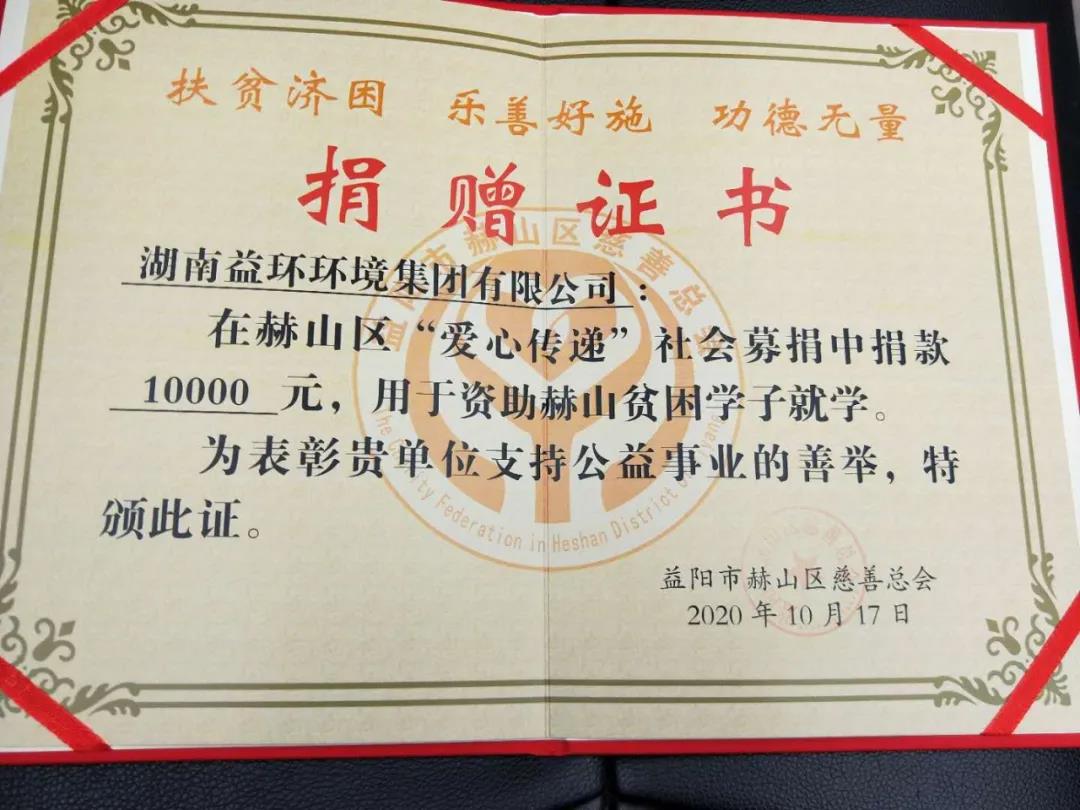 扶贫济困 乐善好施 功德无量
捐赠证书
湖南益环环境集团有限公司：
在赫山区“爱心传递”社会募捐中捐款
10000 元，用于资助赫山贫困学子就学。
为表彰贵单位支持公益事业的善举，特
颁此证。
益阳市赫山区慈善总会
2020 年 10 月 17 日
益阳市赫山区慈善总会
Federation in Heshan District